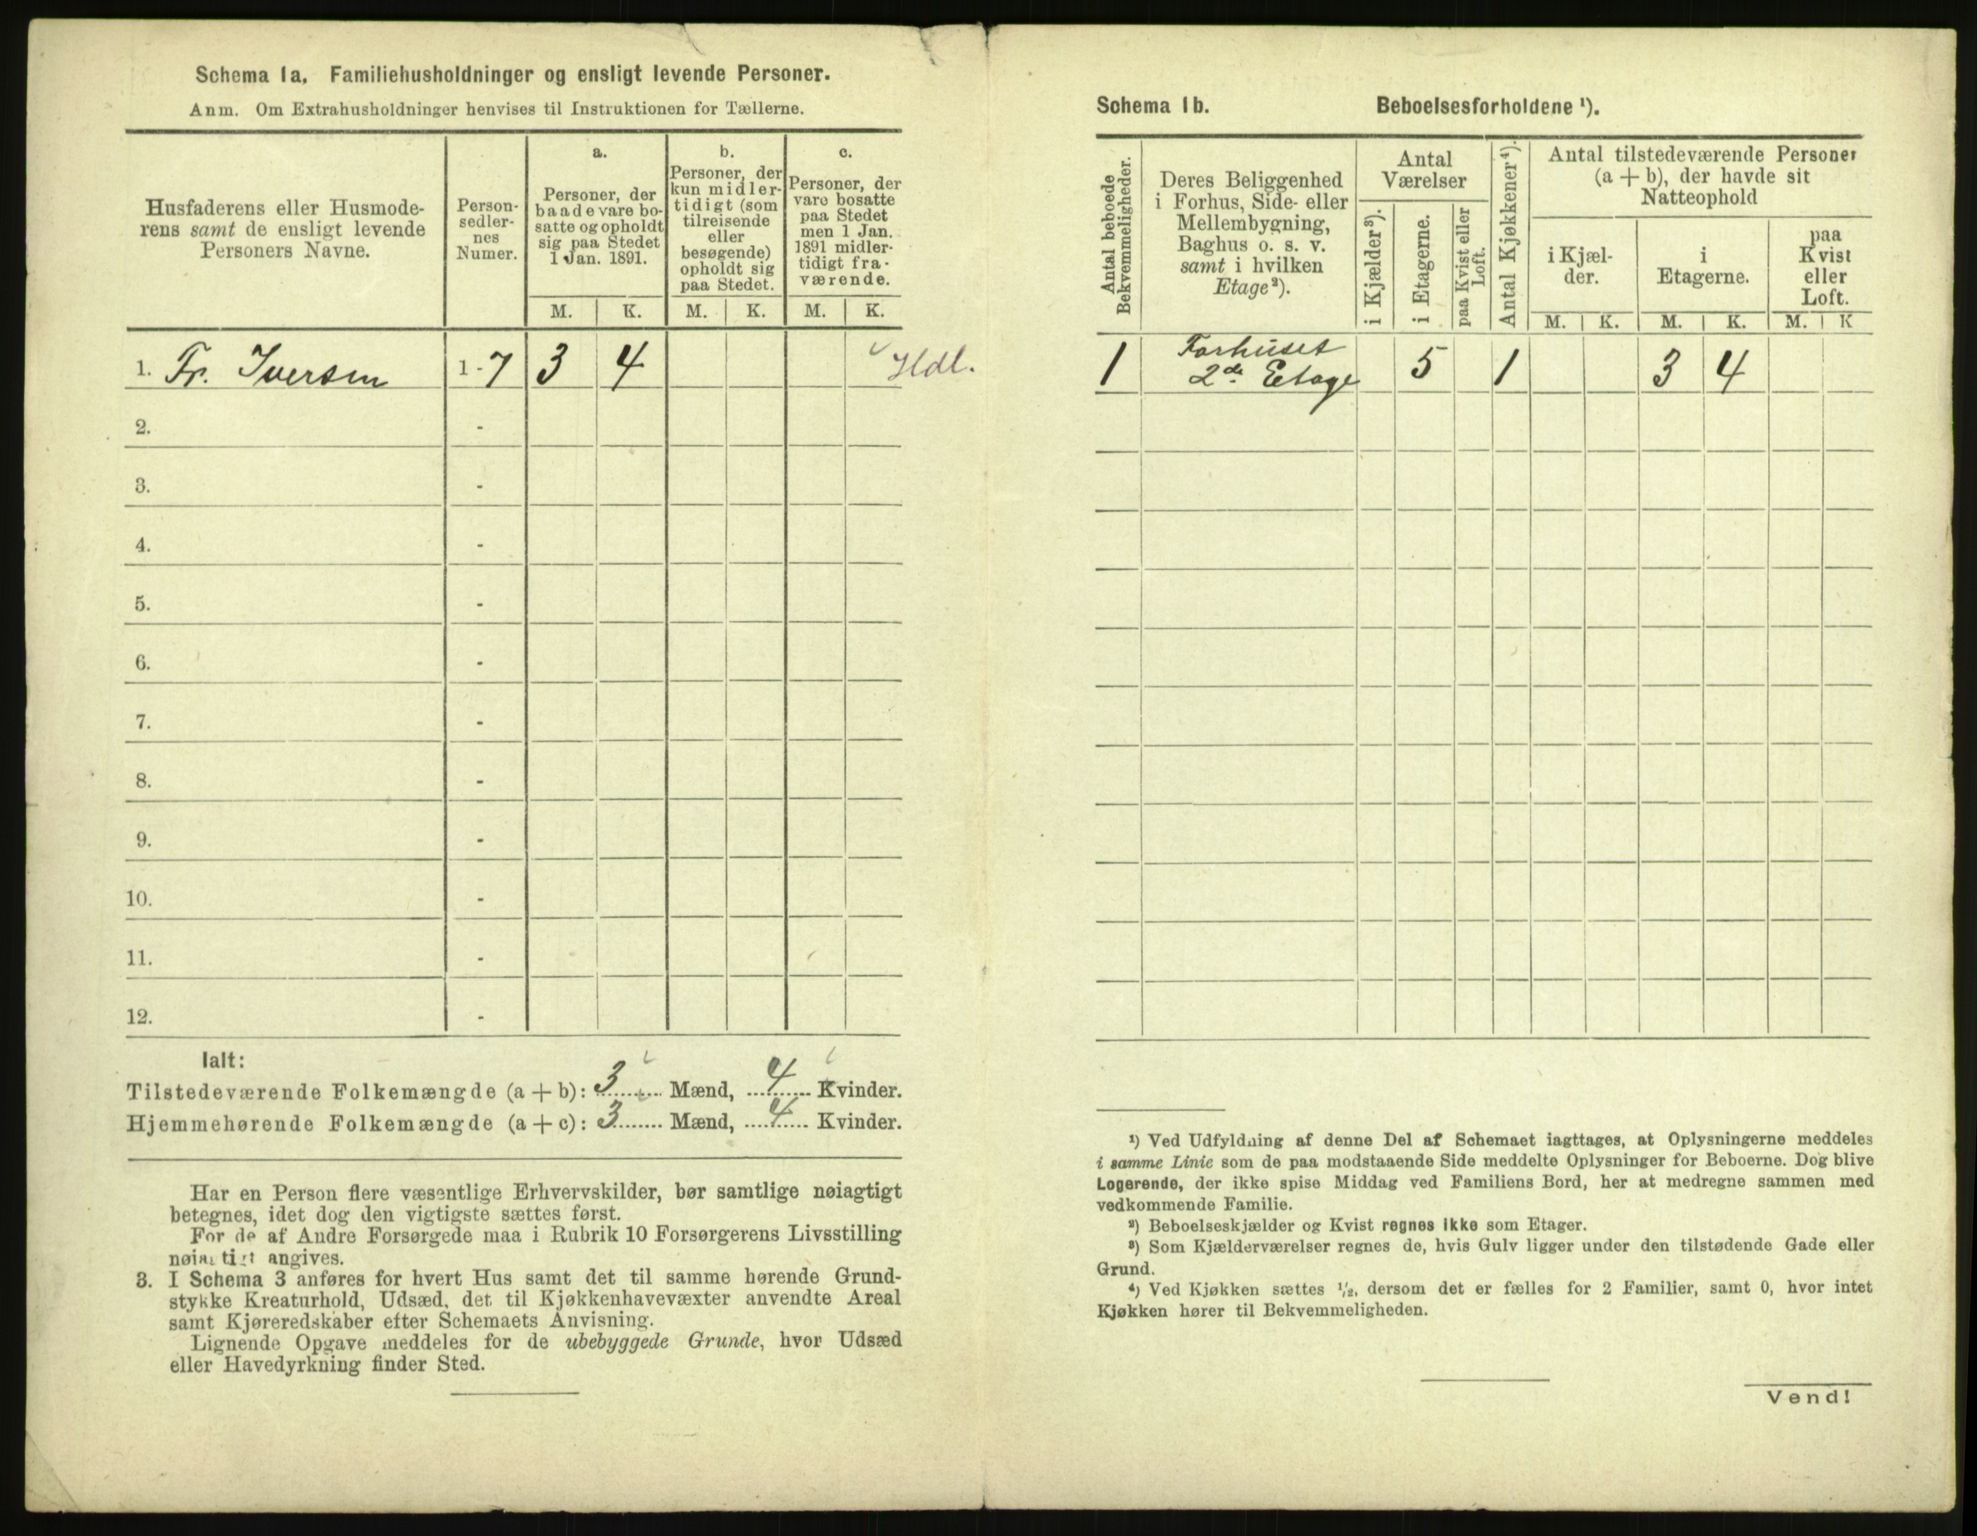 Schema 1a. Familiehusholdninger og ensligt levende Personer.
Anm. Om Extrahusholdninger henvises til Instruktionen for Tællerne.
Husfaderens eller Husmode-
rens samt de ensligt levende
Personers Navne.
Person-
sedler-
nes
Numer.
a.
Personer, der
baade vare bo-
satte og opholdt
sig paa Stedet
1 Jan. 1891.
b.
Personer, der
kun midler-
tidigt (som
tilreisende
eller
besøgende)
opholdt sig
paa Stedet.
c.
Personer, der
vare bosatte
paa Stedet
men 1 Jan.
1891 midler-
tidigt fra-
værende.
M. K. M. K. M. K.
1. Fr. Iversen 1-7 3 4 Hdl.
2. -
3. -
4. -
5. -
6. -
7. -
8. -
9. -
10. -
11. -
12. -
Ialt:
Tilstedeværende Folkemængde (a + b): 3 Mænd, 4 Kvinder.
Hjemmehørende Folkemængde (a + c): 3 Mænd, 4 Kvinder.
Har en Person flere væsentlige Erhvervskilder, bør samtlige nøiagtigt
betegnes, idet dog den vigtigste sættes først.
For de af Andre Forsørgede maa i Rubrik 10 Forsørgerens Livsstilling
nøiagtigt angives.
3. I Schema 3 anføres for hvert Hus samt det til samme hørende Grund-
stykke Kreaturhold, Udsæd, det til Kjøkkenhavevæxter anvendte Areal
samt Kjøreredskaber efter Schemaets Anvisning.
Lignende Opgave meddeles for de ubebyggede Grunde, hvor Udsæd
eller Havedyrkning finder Sted.
Schema 1b. Beboelsesforholdene ¹).
Antal beboede
Bekvemmeligheder.
Deres Beliggenhed
i Forhus, Side- eller
Mellembygning,
Baghus o. s. v.
samt i hvilken
Etage²).
Antal
Værelser
i Kjælder³).
i Etagerne.
paa Kvist eller
Loft.
Antal Kjøkkener⁴).
Antal tilstedeværende Personer
(a + b), der havde sit
Natteophold
i Kjæl-
der.
i
Etagerne.
paa
Kvist
eller
Loft.
M. K. M. K. M. K
1 Forhuset
2de Etage 5 1 3 4
¹) Ved Udfyldning af denne Del af Schemaet iagttages, at Oplysningerne meddeles
i samme Linie som de paa modstaaende Side meddelte Oplysninger for Beboerne. Dog blive
Logerende, der ikke spise Middag ved Familiens Bord, her at medregne sammen med
vedkommende Familie.
²) Beboelseskjælder og Kvist regnes ikke som Etager.
³) Som Kjælderværelser regnes de, hvis Gulv ligger under den tilstødende Gade eller
Grund.
⁴) Ved Kjøkken sættes ¹/₂, dersom det er fælles for 2 Familier, samt 0, hvor intet
Kjøkken hører til Bekvemmeligheden.
Vend!